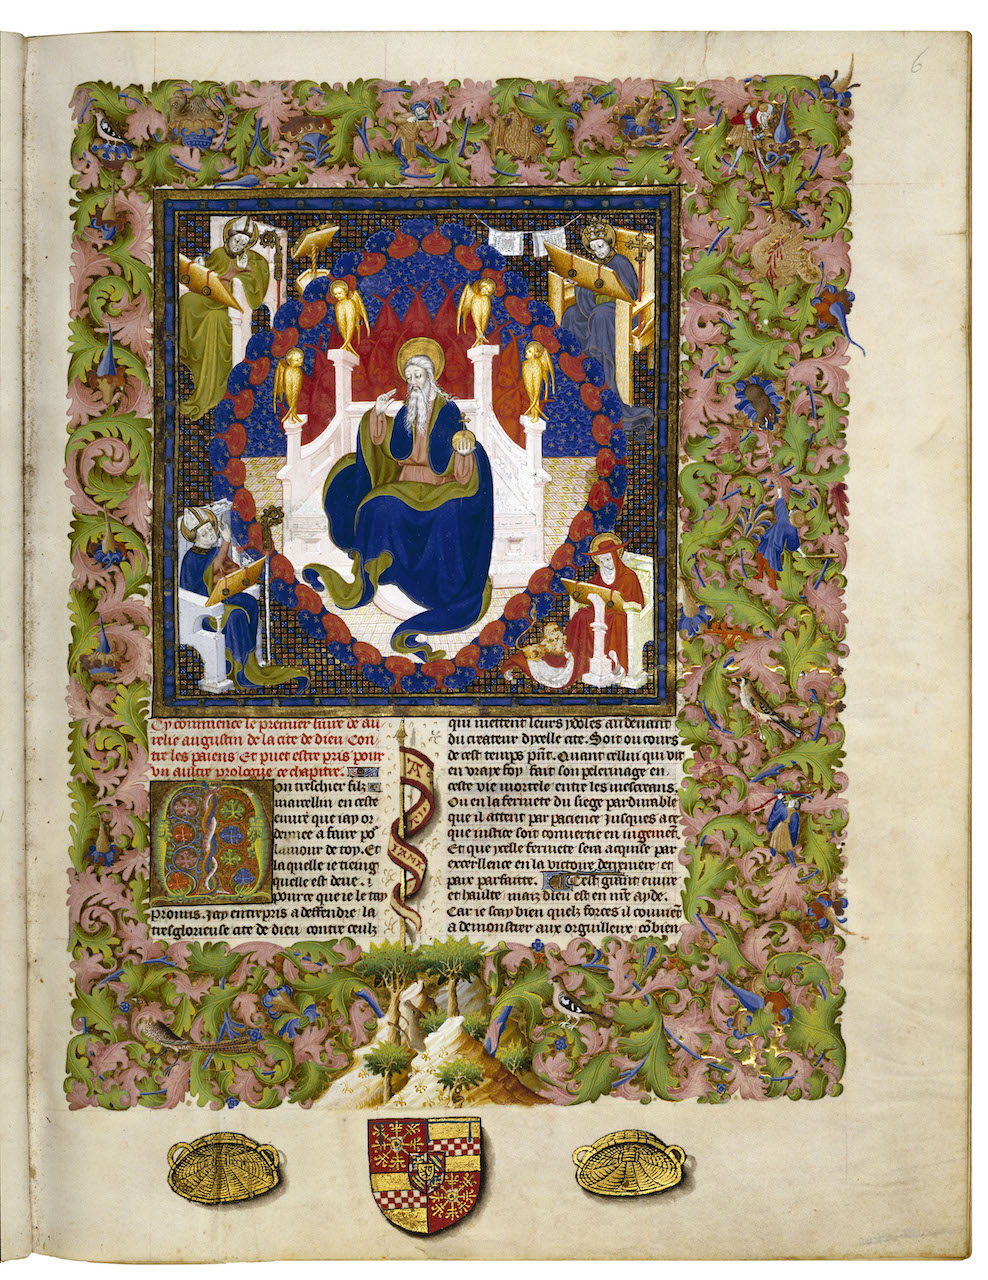 6
Cy commence le premier livre de au
relie augustin de la cite de dieu Con
tre les paiens Et puet estre pris pour
vn aultre prologue ce chapitre.
Mon treschier filz
marcellin en ceste
euvre que iay or
denee a faire por
lamour de toy. Et
laquelle ie tieing
quelle est deue.
pource que ie le tay
promis. Jay entrepris a deffendre la
tresglorieuse cite de dieu contre ceulz
qui mettent leurs ydoles au deuant
du createur dycelle cite. Soit ou cours
de cest temps pnt. Quant cellui qui vit
en vraye foy fait son pelerinage en
ceste vie mortele entre les mescreans.
Ou en la fermete du siege pardurable
que il attent par pacience Jusques a ce
que iustice soit conuertie en iugement.
Et que ycelle fermete sera acquise par
excellence en la victoire derreniere et
paix parfaitte. Cest grant euure
et haulte maiz dieu est en nre ayde.
Car ie scay bien quelz forces il conuiet
a demonstrer aux orguilleux cobien